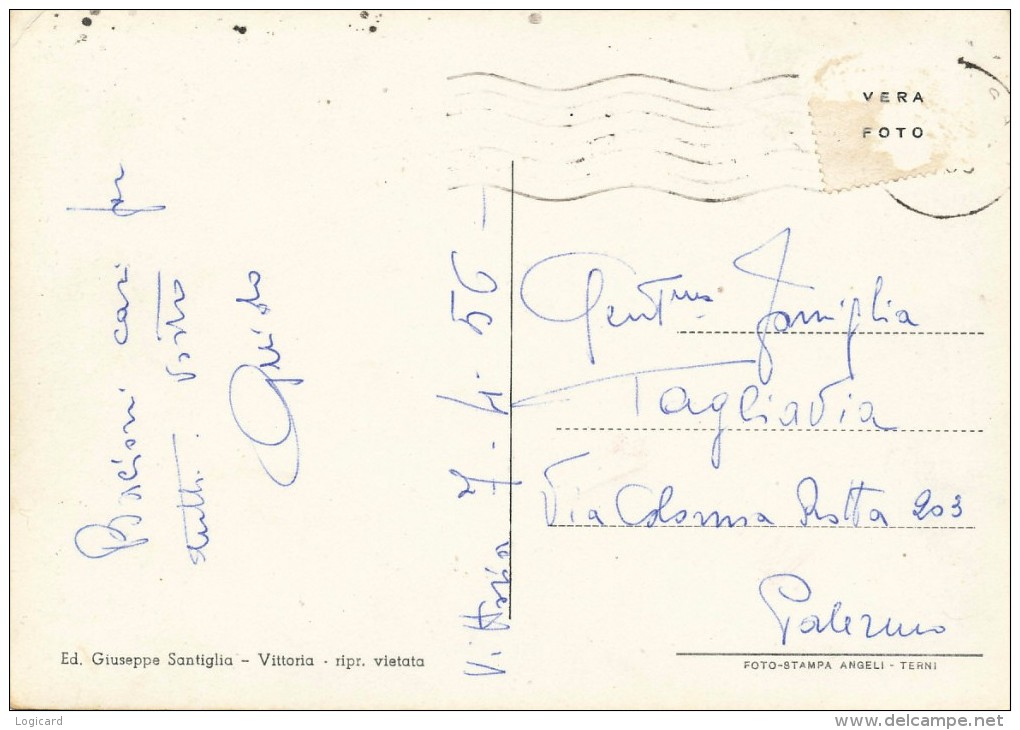 VERA
FOTO
Bacioni cari per
tutti. Vostro
Guido
Vittoria 7-4-56-
Gent.ma Famiglia
Tagliavia
Via Colonna Rotta 203
Palermo
Ed. Giuseppe Santiglia - Vittoria - ripr. vietata
FOTO-STAMPA ANGELI - TERNI
Logicard
www.delcampe.net